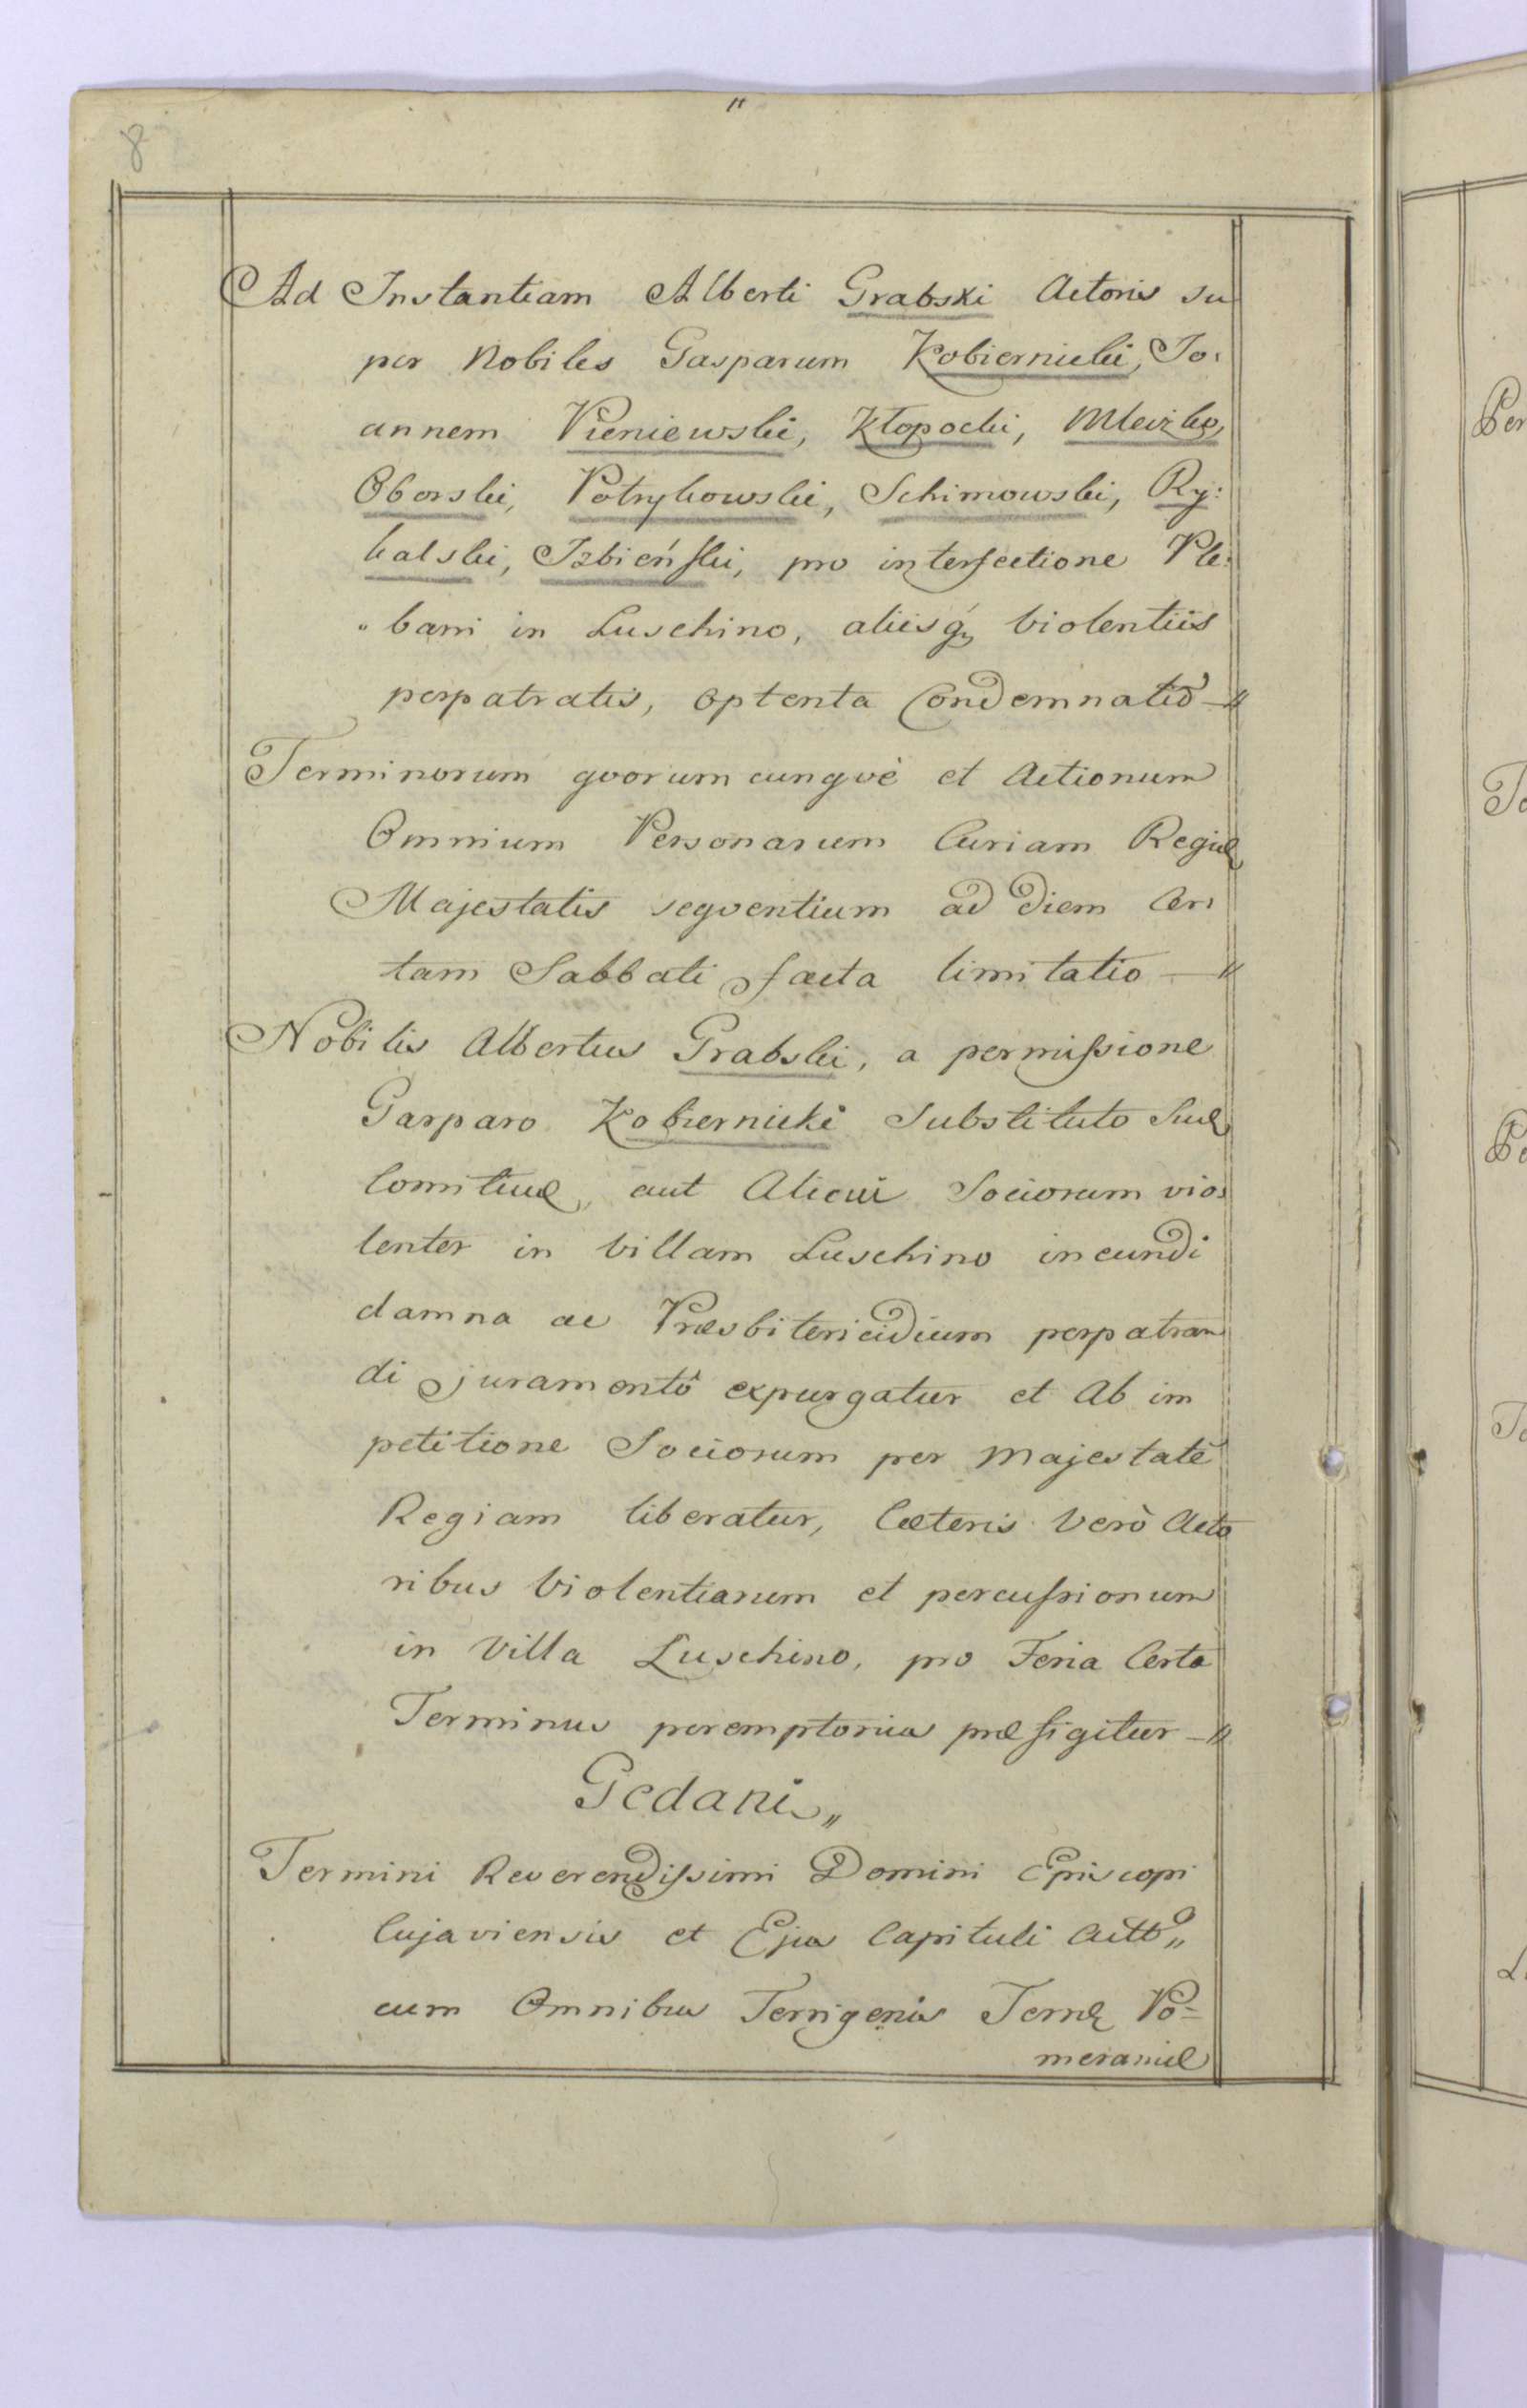 "
8
Ad Instantiam Alberti Grabski Actoris su
per Nobiles Gasparum Kobiernicki, Jo:
annem Pieniewski, Kłopocki, Mleizko,
Oborski, Potrykowski, Schimowski, Ry:
kalski, Izbieński, pro interfectione Ple:
"bani in Luschino, aliisq́ꝫ violentiis
perpatratis, optenta Condemnatiõ —//
Terminorum qvorumcunqvè et Actionum
Omnium Personarum Curiam Regiæ
Majestatis seqventium ad diem Cer:
tam Sabbati facta limitatio —//
Nobilis Albertus Grabski, a permissione
Gasparo Kobiernicki Substituto Suæ
Comitivæ, aut Alicui Sociorum vio:
lenter in villam Luschino ineundi
damna ac Præsbitericidium perpatran
di juramentô expurgatur et Ab im
petitione Sociorum per Majestatẽ
Regiam liberatur, Cæteris verò Acto
ribus Violentiarum et percussionum
in Villa Luschino, pro Feria Certa
Terminus peremptorius præfigitur —//
Gedani„
Termini Reverendissimi Domini Episcopi
Cujaviensis et Ejus Capituli
cum Omnibus Terrigenis Terræ Po=
meraniæ